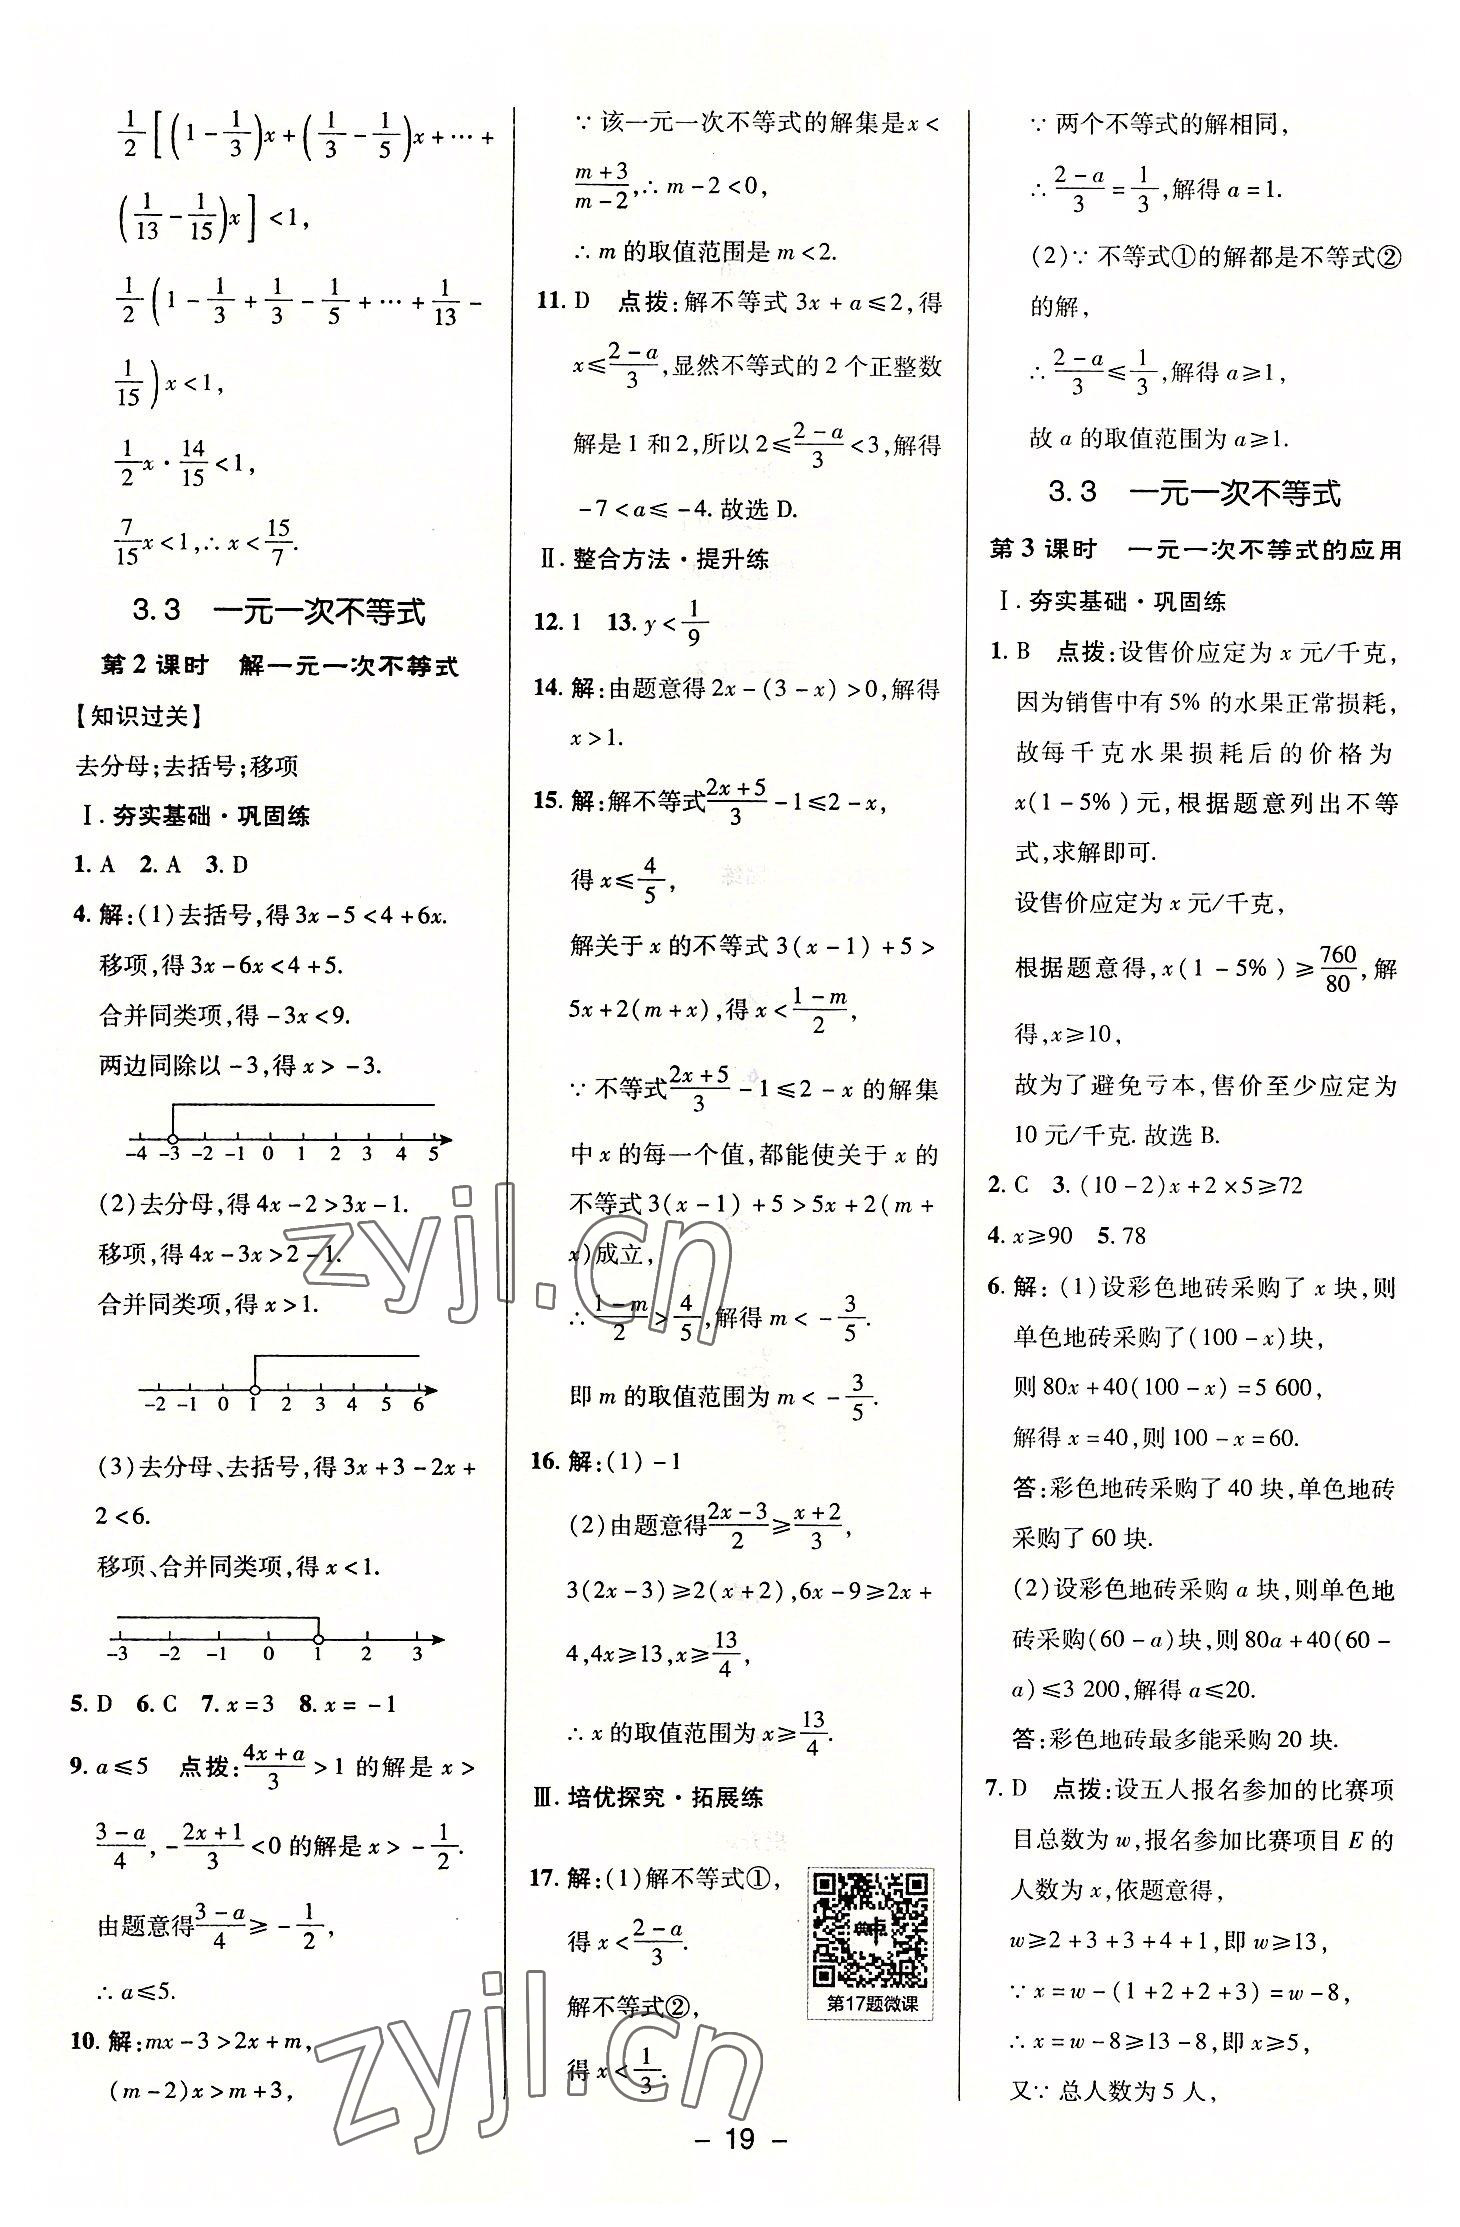 1/2[(1-1/3)x+(1/3-1/5)x+⋯+
(1/13-1/15)x]<1,
1/2(1-1/3+1/3-1/5+⋯+1/13-
1/15)x<1,
1/2x·14/15<1,
7/15x<1,∴x<15/7.
3.3 一元一次不等式
第2课时 解一元一次不等式
【知识过关】
去分母;去括号;移项
Ⅰ.夯实基础·巩固练
1.A 2.A 3.D
4.解:(1)去括号,得3x-5<4+6x.
移项,得3x-6x<4+5.
合并同类项,得-3x<9.
两边同除以-3,得x>-3.
-4 -3 -2 -1 0 1 2 3 4 5
(2)去分母,得4x-2>3x-1.
移项,得4x-3x>2-1.
合并同类项,得x>1.
-2 -1 0 1 2 3 4 5 6
(3)去分母、去括号,得3x+3-2x+
2<6.
移项、合并同类项,得x<1.
-3 -2 -1 0 1 2 3
5.D 6.C 7.x=3 8.x=-1
9.a≤5 点拨:(4x+a)/3>1的解是x>
(3-a)/4,-(2x+1)/3<0的解是x>-1/2.
由题意得(3-a)/4≥-1/2,
∴a≤5.
10.解:mx-3>2x+m,
(m-2)x>m+3,
∵该一元一次不等式的解集是x<
(m+3)/(m-2),∴m-2<0,
∴m的取值范围是m<2.
11.D 点拨:解不等式3x+a≤2,得
x≤(2-a)/3,显然不等式的2个正整数
解是1和2,所以2≤(2-a)/3<3,解得
-7<a≤-4.故选D.
Ⅱ.整合方法·提升练
12.1 13.y<1/9
14.解:由题意得2x-(3-x)>0,解得
x>1.
15.解:解不等式(2x+5)/3-1≤2-x,
得x≤4/5,
解关于x的不等式3(x-1)+5>
5x+2(m+x),得x<(1-m)/2,
∵不等式(2x+5)/3-1≤2-x的解集
中x的每一个值,都能使关于x的
不等式3(x-1)+5>5x+2(m+
x)成立,
∴(1-m)/2>4/5,解得m<-3/5.
即m的取值范围为m<-3/5.
16.解:(1)-1
(2)由题意得(2x-3)/2≥(x+2)/3,
3(2x-3)≥2(x+2),6x-9≥2x+
4,4x≥13,x≥13/4,
∴x的取值范围为x≥13/4.
Ⅲ.培优探究·拓展练
17.解:(1)解不等式①,
得x<(2-a)/3.
解不等式②,
得x<1/3.
典点
第17题微课
∵两个不等式的解相同,
∴(2-a)/3=1/3,解得a=1.
(2)∵不等式①的解都是不等式②
的解,
∴(2-a)/3≤1/3,解得a≥1,
故a的取值范围为a≥1.
3.3 一元一次不等式
第3课时 一元一次不等式的应用
Ⅰ.夯实基础·巩固练
1.B 点拨:设售价应定为x元/千克,
因为销售中有5%的水果正常损耗,
故每千克水果损耗后的价格为
x(1-5%)元,根据题意列出不等
式,求解即可.
设售价应定为x元/千克,
根据题意得,x(1-5%)≥760/80,解
得,x≥10,
故为了避免亏本,售价至少应定为
10元/千克.故选B.
2.C 3.(10-2)x+2×5≥72
4.x≥90 5.78
6.解:(1)设彩色地砖采购了x块,则
单色地砖采购了(100-x)块,
则80x+40(100-x)=5 600,
解得x=40,则100-x=60.
答:彩色地砖采购了40块,单色地砖
采购了60块.
(2)设彩色地砖采购a块,则单色地
砖采购(60-a)块,则80a+40(60-
a)≤3 200,解得a≤20.
答:彩色地砖最多能采购20块.
7.D 点拨:设五人报名参加的比赛项
目总数为w,报名参加比赛项目E的
人数为x,依题意得,
w≥2+3+3+4+1,即w≥13,
∵x=w-(1+2+2+3)=w-8,
∴x=w-8≥13-8,即x≥5,
又∵总人数为5人,
- 19 -
zyjl.cn
zyjl.cn